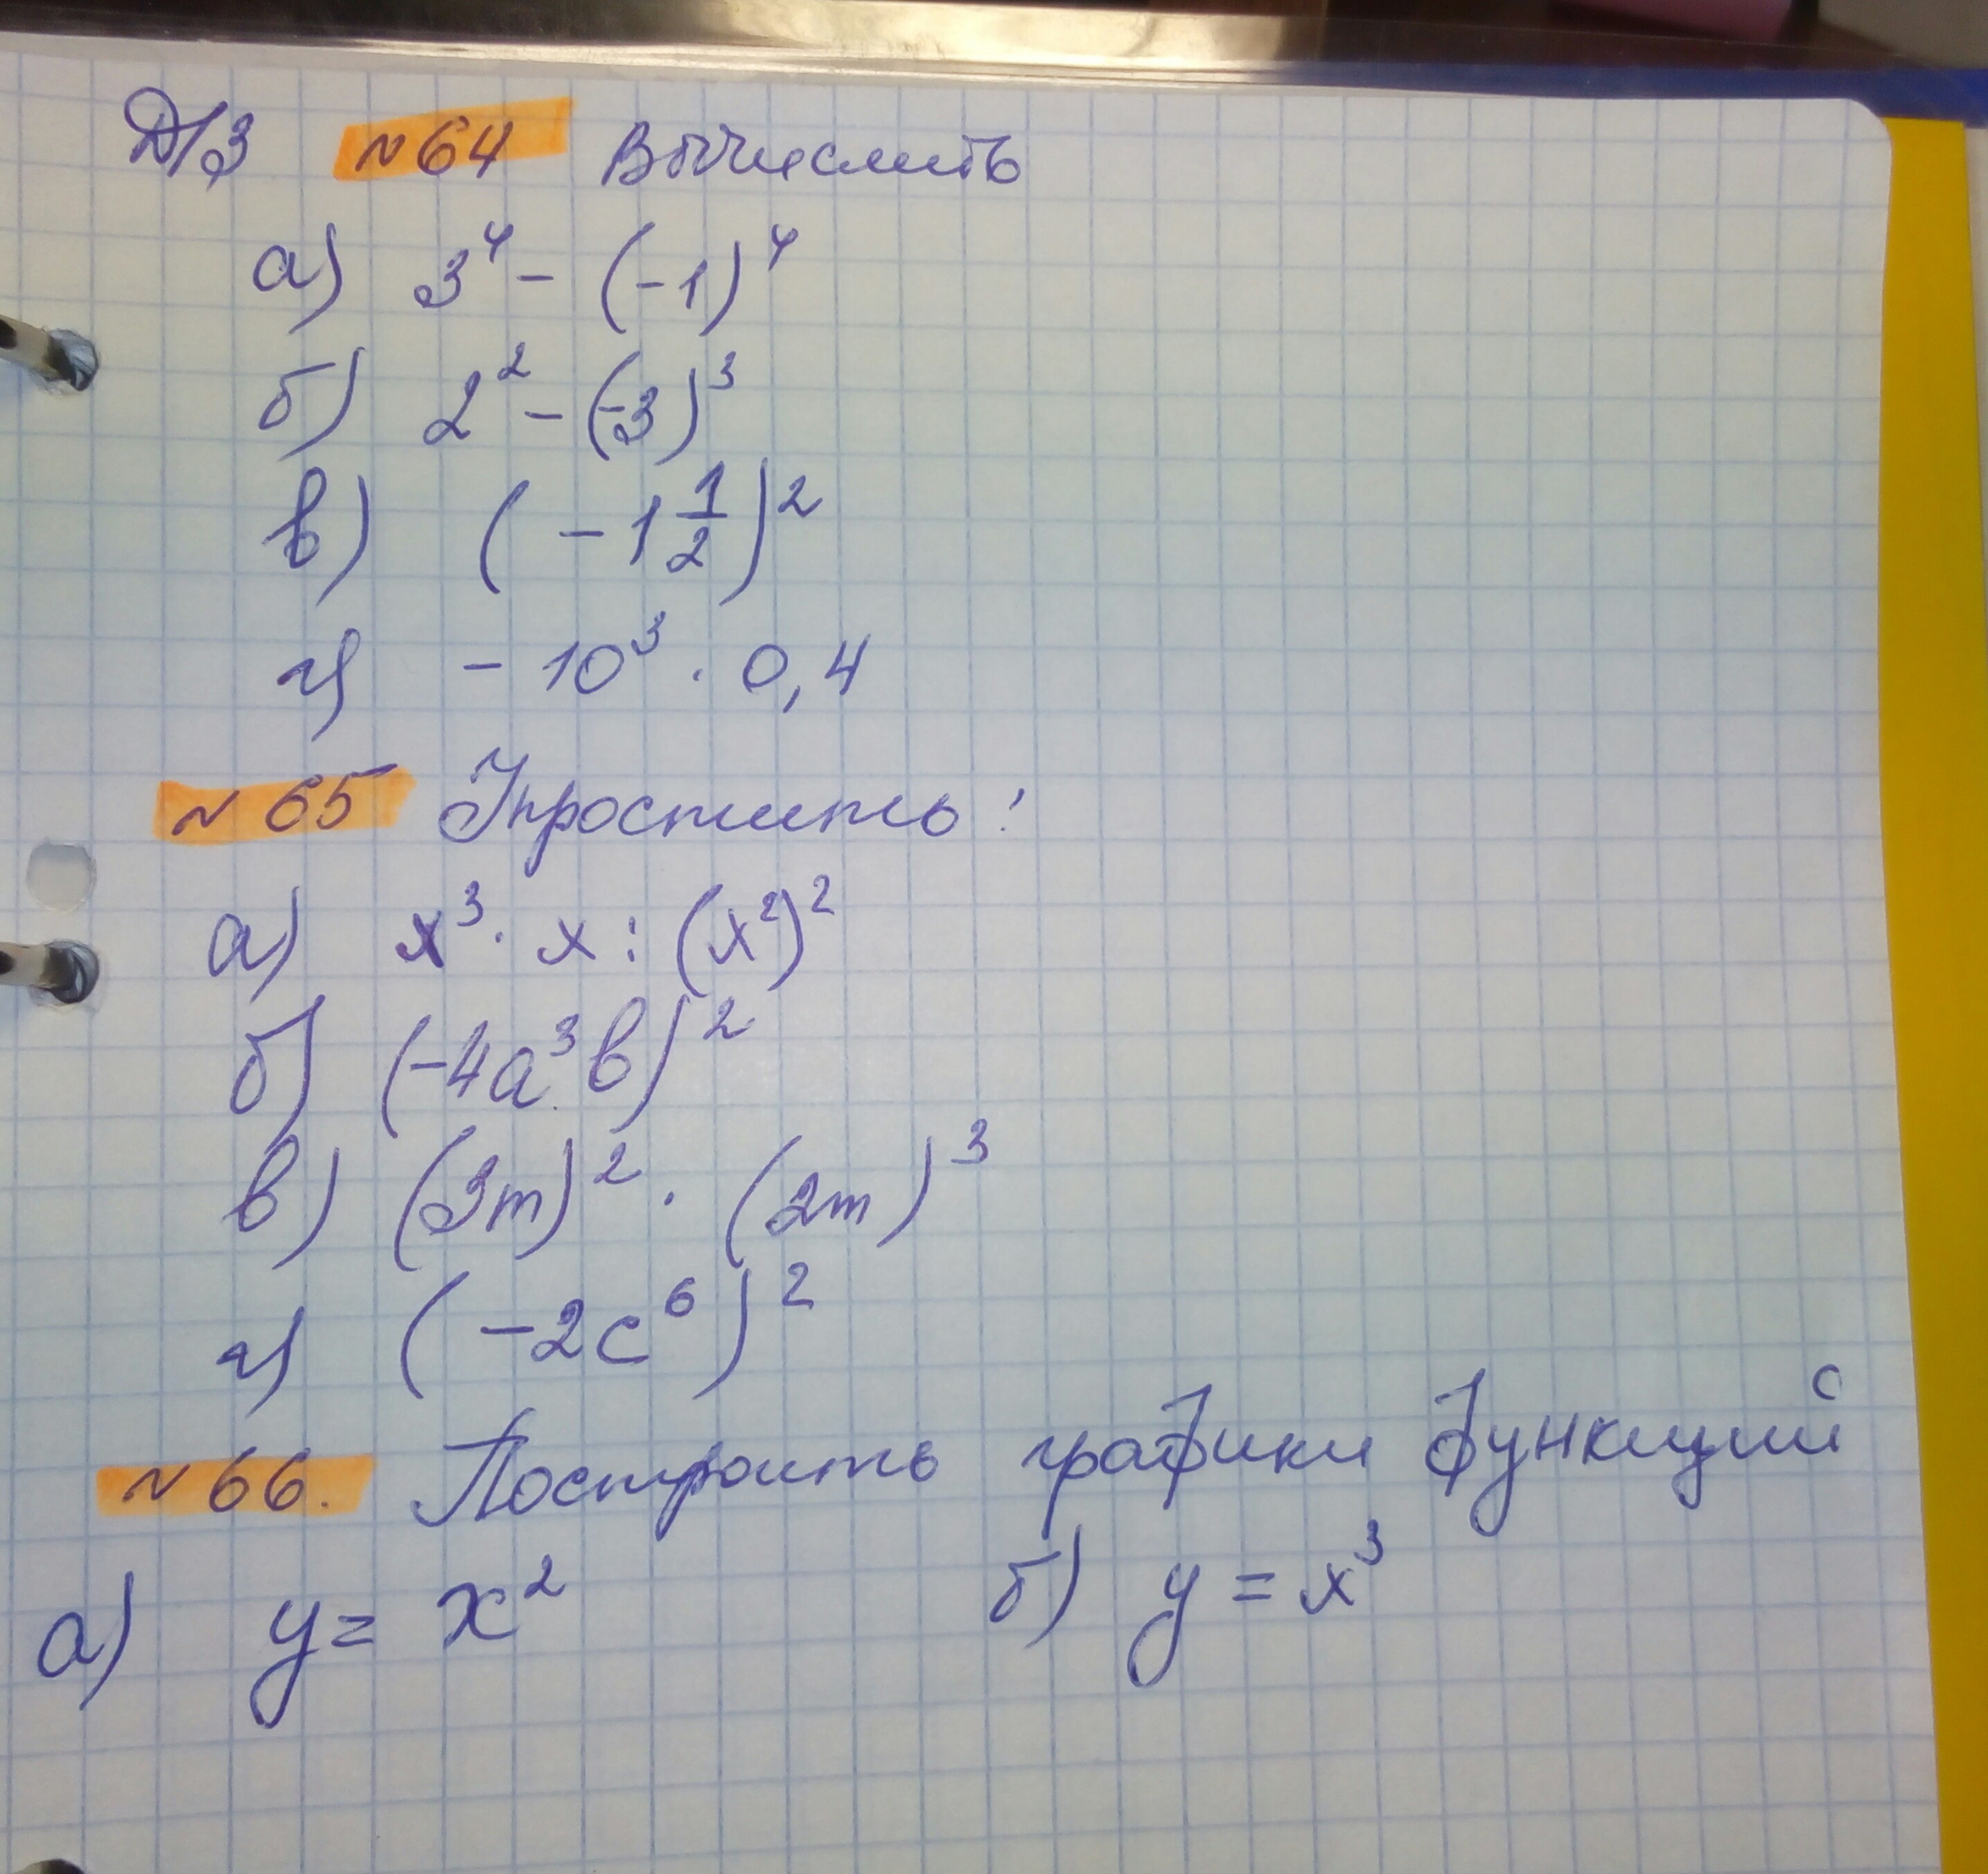 Д/З №64 Вычислить
а) 3⁴ - (-1)⁴
б) 2² - (-3)³
в) (-1 1/2)²
г) - 10³ · 0,4
№65 Упростить:
а) x³ · x : (x²)²
б) (-4a³b)²
в) (3m)² · (2m)³
г) (-2c⁶)²
№66. Построить графики функций
а) y = x² б) y = x³